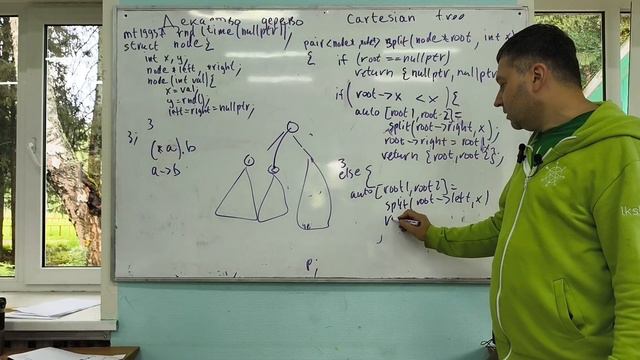 Декартово дерево
Cartesian tree
mt19937 rnd(time(nullptr));
struct node {
int x, y;
node *left, *right;
node (int val) {
x = val;
y = rnd();
left = right = nullptr;
}
};
(*a).b
a->b
pair<node*, node*> split(node *root, int x)
{ if (root == nullptr)
return {nullptr, nullptr
if (root->x < x) {
auto [root1, root2] =
split(root->right, x);
root->right = root1;
return {root, root2};
}
else {
auto [root1, root2] =
split(root->left, x)
p;